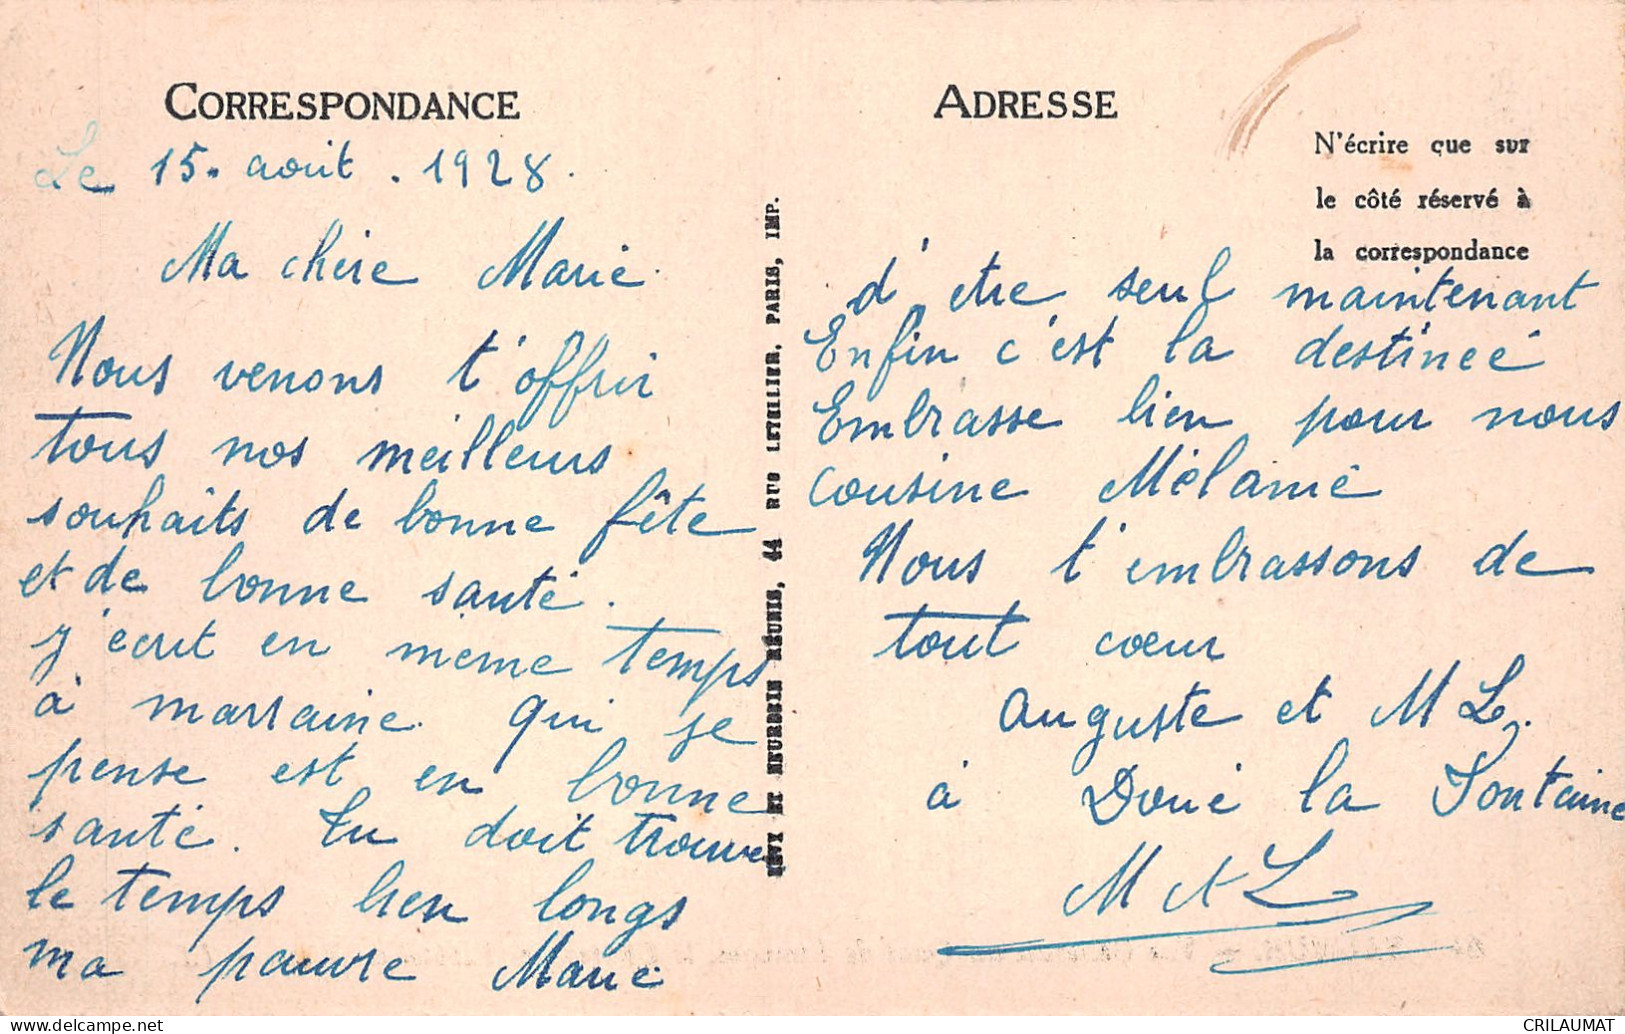 CORRESPONDANCE
Le 15. août. 1928.
Ma chère Marie.
Nous venons t'offrir
tous nos meilleurs
souhaits de bonne fête
et de bonne santé.
J'écrit en même temps
à marraine. qui je
pense est en bonne
santé. Tu doit trouve
le temps bien longs
ma pauvre Marie
LEVY ET NEURDEIN RÉUNIS, 44 RUE LETELLIER, PARIS, IMP.
ADRESSE
N'écrire que sur
le côté réservé à
la correspondance
d'etre seul maintenant
Enfin c'est la destineé
Embrasse bien pour nous
cousine Mélanie
Nous t'embrassons de
tout coeur
Auguste et M L.
à Doué la Fontaine
M L
CRILAUMAT